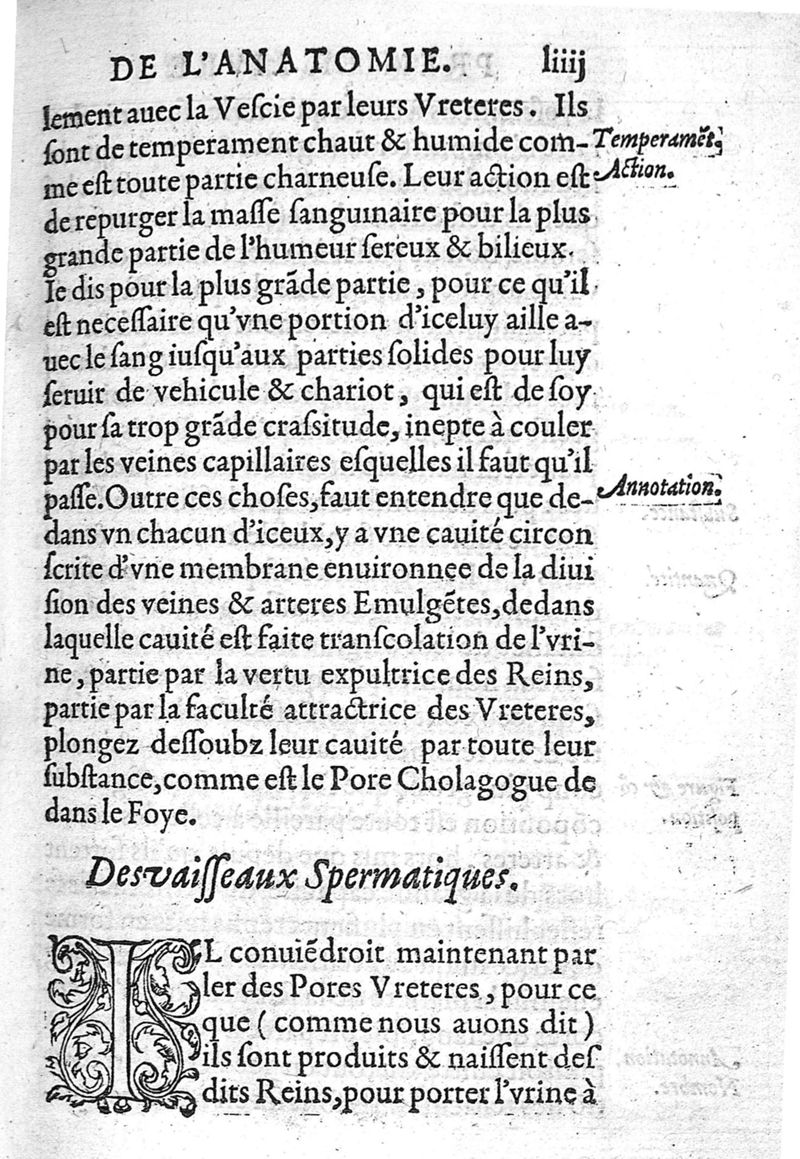 DE L'ANATOMIE. liiij
lement auec la Veſcie par leurs Vreteres. Ils
ſont de temperament chaut & humide com-
Temperamẽt.
me eſt toute partie charneuſe. Leur action eſt
Action.
de repurger la maſſe ſanguinaire pour la plus
grande partie de l'humeur ſereux & bilieux.
Ie dis pour la plus grãde partie, pour ce qu'il
eſt neceſſaire qu'vne portion d'iceluy aille a-
uec le ſang iuſqu'aux parties ſolides pour luy
ſeruir de vehicule & chariot, qui eſt de ſoy
pour ſa trop grãde craſsitude, inepte à couler
par les veines capillaires eſquelles il faut qu'il
paſſe. Outre ces choſes, faut entendre que de-
Annotation.
dans vn chacun d'iceux, y a vne cauité circon
ſcrite d'vne membrane enuironnee de la diui
ſion des veines & arteres Emulgẽtes, dedans
laquelle cauité eſt faite tranſcolation de l'vri-
ne, partie par la vertu expultrice des Reins,
partie par la faculté attractrice des Vreteres,
plongez deſſoubz leur cauité par toute leur
ſubſtance, comme eſt le Pore Cholagogue de
dans le Foye.
Des vaiſſeaux Spermatiques.
IL conuiẽdroit maintenant par
ler des Pores Vreteres, pour ce
que (comme nous auons dit)
ils ſont produits & naiſſent deſ
dits Reins, pour porter l'vrine à